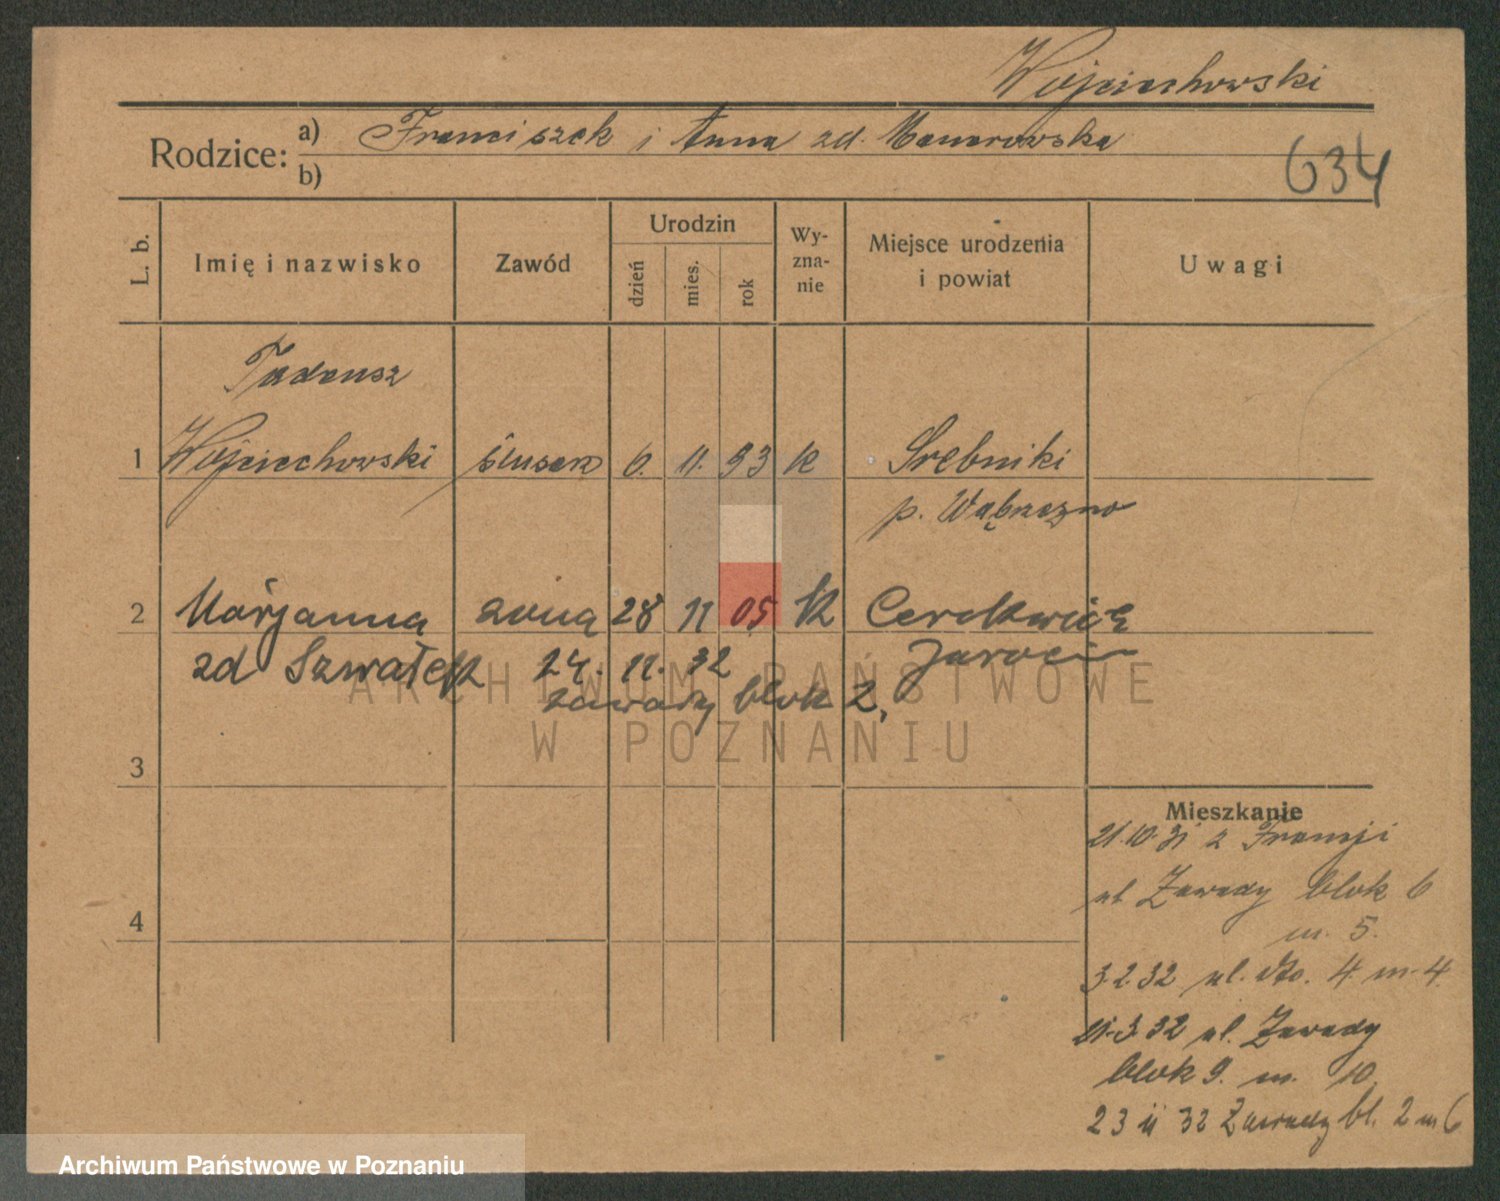 Wojciechowski
Rodzice: a) Franciszek i Anna zd. Manarowska
b)
634
L. b. Imię i nazwisko Zawód Urodzin dzień mies. rok Wy-zna-nie Miejsce urodzenia i powiat Uwagi
Tadeusz
1 Wojciechowski ślusarz 6. 11. 93 k Srebniki
p. Wąbrzezno
2 Marjanna żona 28 11 05 k Cerekwica
zd Szwałek 24. 11. 32 Jarocin
zawady blok 2,
3
Mieszkanie
21.10.31 z Francji
ul Zawady blok 6
m. 5.
4
3.2.32 ul. 4 m. 4
21.3.32 ul. Zawady
blok 9. m. 10
23 11 32 Zawady bl. 2 m 6
ARCHIWUM PAŃSTWOWE
W POZNANIU
Archiwum Państwowe w Poznaniu